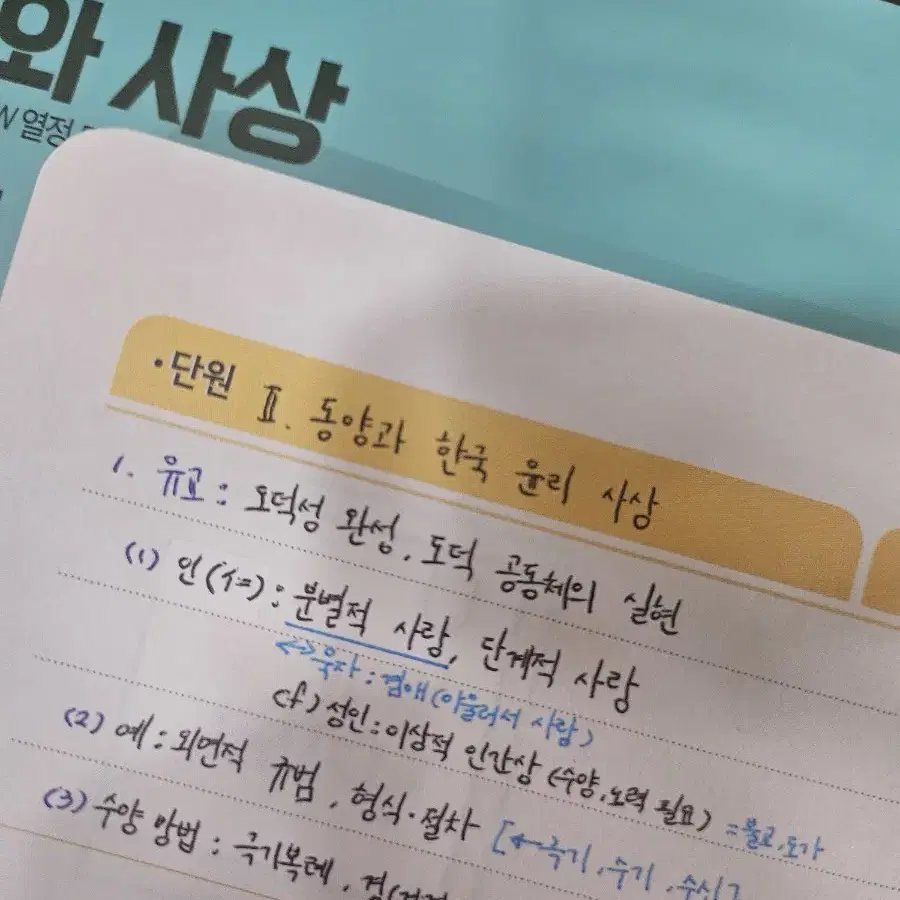 와 사상
열정
•단원 Ⅱ. 동양과 한국 윤리 사상
1. 유교 : 도덕성 완성, 도덕 공동체의 실현
(1) 인(仁) : 분별적 사랑, 단계적 사랑
<-> 묵자 : 겸애(아울러서 사랑)
cf) 성인 : 이상적 인간상 (수양, 노력 필요) = 불교, 도가
(2) 예 : 외면적 규범, 형식·절차 [<-극기, 수기, 수신]
(3) 수양 방법 : 극기복례,